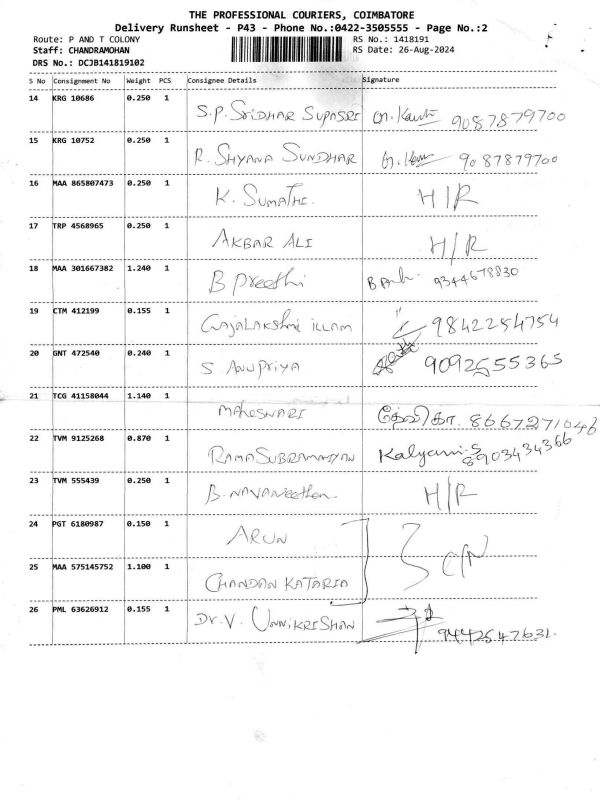 THE PROFESSIONAL COURIERS, COIMBATORE
Delivery Runsheet - P43 - Phone No.:0422-3505555 - Page No.:2
Route: P AND T COLONY RS No.: 1418191
Staff: CHANDRAMOHAN RS Date: 26-Aug-2024
DRS No.: DCJB141819102
S No Consignment No Weight PCS Consignee Details Signature
14 KRG 10686 0.250 1 S.P. SRIDHAR SUPASRI 9087879700
15 KRG 10752 0.250 1 R. SHYANA SUNDHAR 9087879700
16 MAA 865807473 0.250 1 K. SUMATHI. H/R
17 TRP 4568965 0.250 1 AKBAR ALI H/R
18 MAA 301667382 1.240 1 B Preethi 9344678830
19 CTM 412199 0.155 1 Gajalakshmi illam 9842254754
20 GNT 472540 0.240 1 S. Anupriya 9092555365
21 TCG 41158044 1.140 1 MAHESWARI தேவிகா. 8667271046
22 TVM 9125268 0.870 1 RAMASUBRAMANIYAN Kalyani.S 8903434366
23 TVM 555439 0.250 1 B. NAVANeethan H/R
24 PGT 6180987 0.150 1 ARUN
25 MAA 575145752 1.100 1 CHANDAN KATARIA
26 PML 63626912 0.155 1 Dr. V. UNNIKRISHAN 9442547631.